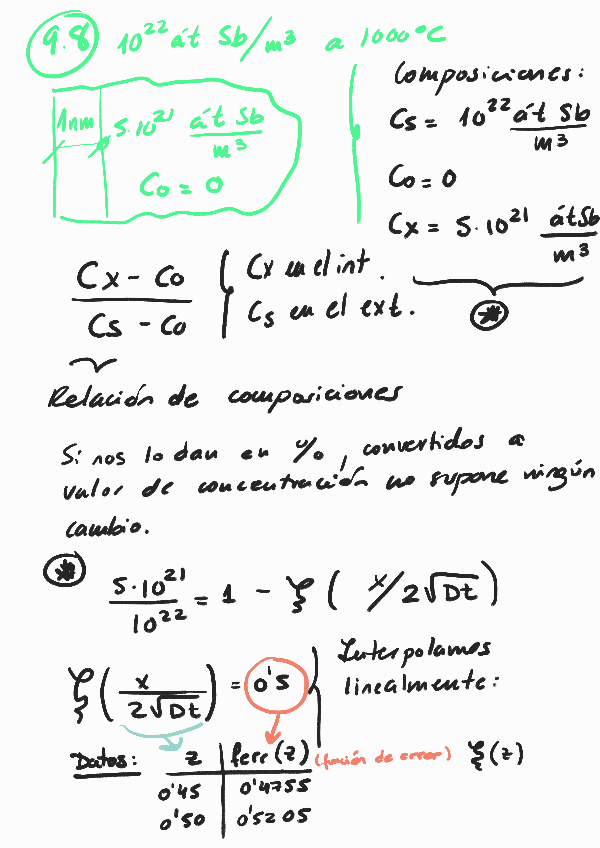 9.8 10²² át Sb/m³ a 1000°C
1nm 5·10²¹ át Sb/m³
C₀ = 0
Composiciones:
Cs = 10²² át Sb/m³
C₀ = 0
Cx = 5·10²¹ át Sb/m³
(Cx - C₀)/(Cs - C₀) { Cx en el int.
Cs en el ext.
*
Relación de composiciones
Si nos lo dan en %, convertidos a
valor de concentración no supone ningún
cambio.
* 5·10²¹/10²² = 1 - ξ ( x/2√Dt )
ξ ( x/2√Dt ) = 0'5
Interpolamos
linealmente:
Datos: z ferr(z) (función de error) ξ(z)
0'45 0'4755
0'50 0'5205